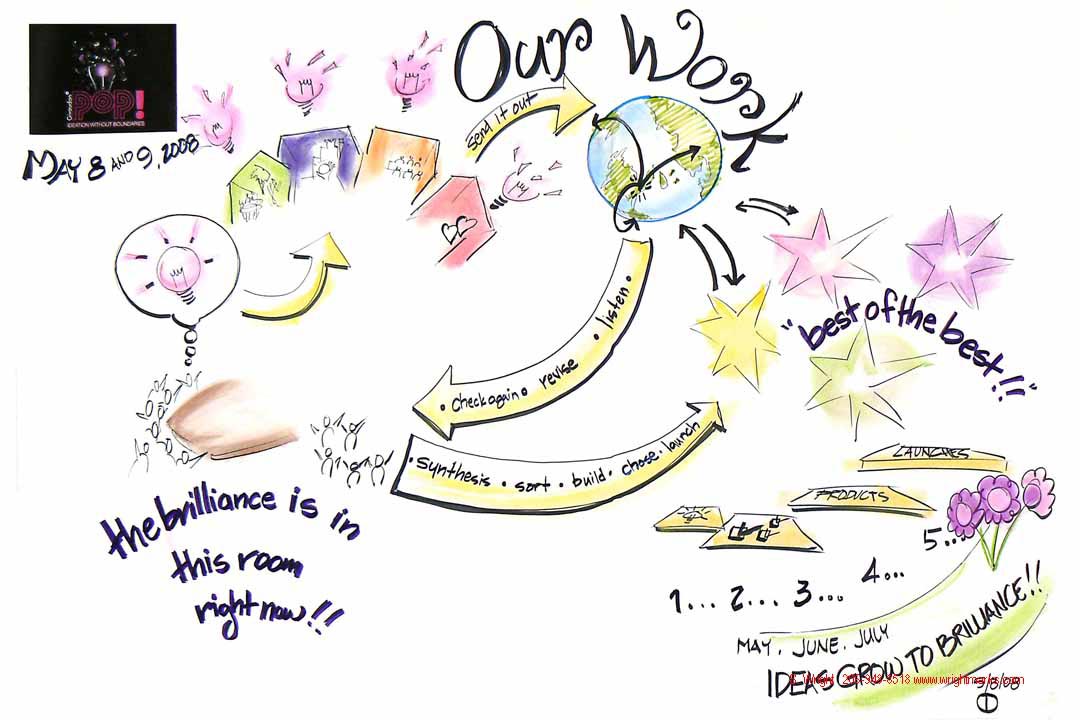 Our Work
POP!
IDEATION WITHOUT BOUNDARIES
MAY 8 AND 9, 2008
send it out
• listen •
• check again • revise
• synthesis • sort • build • chose • launch
"best of the best!!"
the brilliance is in
this room
right now!!
LAUNCHES
PRODUCTS
1... 2... 3... 4... 5...
MAY, JUNE, JULY
IDEAS GROW TO BRILLIANCE!!
Wright www.wrightmarks.com
5/8/08